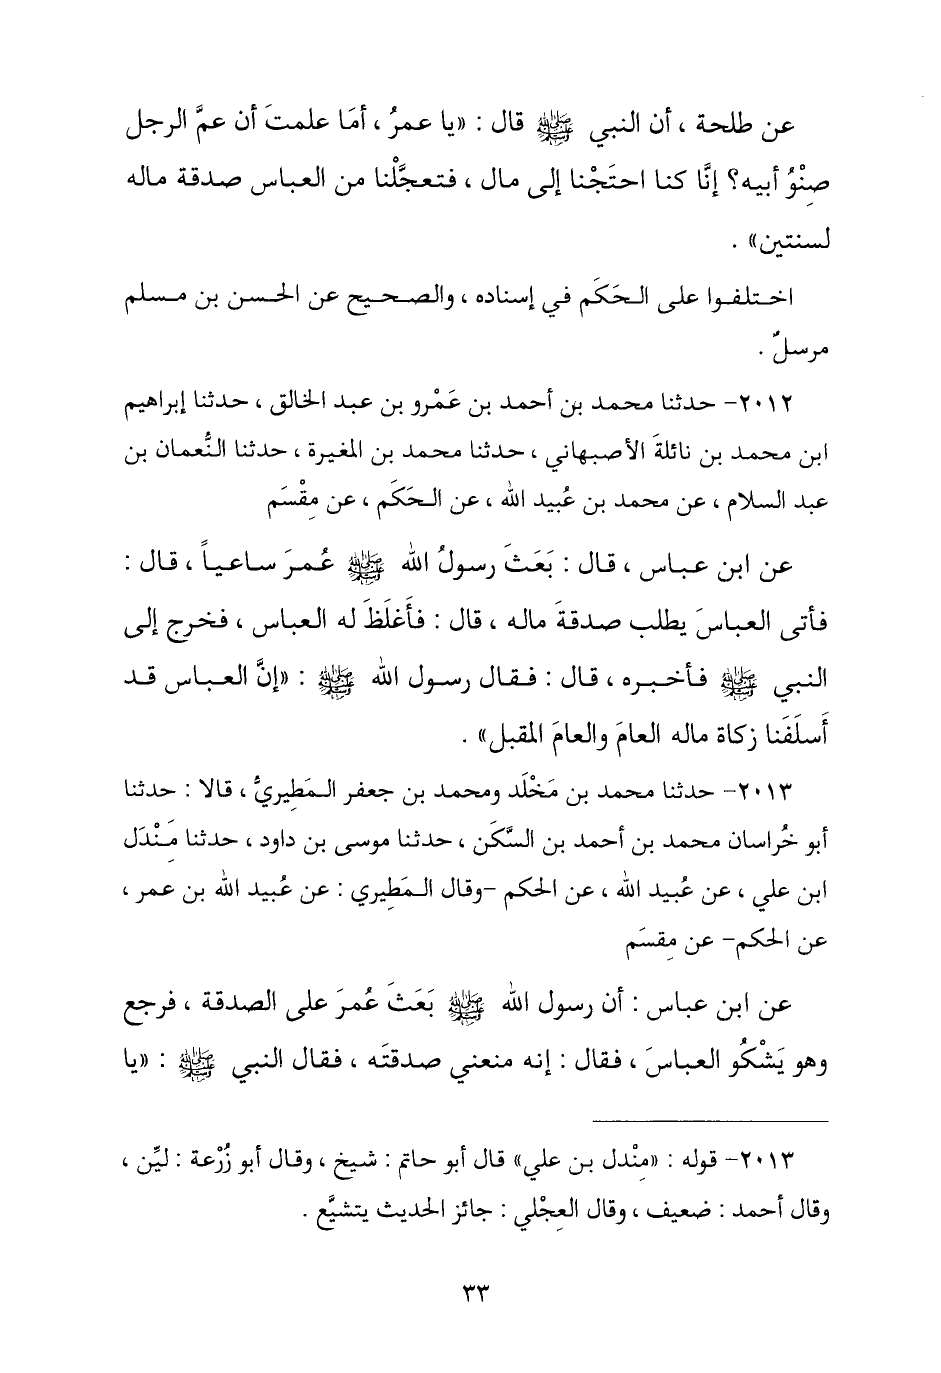 عن طلحة ، أن النبي ﷺ قال : «يا عمرُ ، أمَا علمتَ أن عمَّ الرجل
صِنْوُ أبيه؟ إنَّا كنا احتَجْنا إلى مال ، فتعجَّلْنا من العباس صدقة ماله
لسنتين» .
اختلفوا على الحَكَم في إسناده ، والصحيح عن الحسن بن مسلم
مرسلٌ .
٢٠١٢- حدثنا محمد بن أحمد بن عَمْرو بن عبد الخالق ، حدثنا إبراهيم
ابن محمد بن نائلةَ الأصبهاني ، حدثنا محمد بن المغيرة ، حدثنا النُّعمان بن
عبد السلام ، عن محمد بن عُبيد الله ، عن الحَكَم ، عن مِقْسَم
عن ابن عباس ، قال : بَعَثَ رسولُ الله ﷺ عُمرَ ساعياً ، قال :
فأتى العباسَ يطلب صدقةَ ماله ، قال : فأَغلَظَ له العباس ، فخرج إلى
النبي ﷺ فأخبره ، قال : فقال رسول الله ﷺ : «إنَّ العباس قد
أَسلَفَنا زكاة ماله العامَ والعامَ المقبل» .
٢٠١٣- حدثنا محمد بن مَخْلَد ومحمد بن جعفر المَطِيريُّ ، قالا : حدثنا
أبو خُراسان محمد بن أحمد بن السَّكَن ، حدثنا موسى بن داود ، حدثنا مَِنْدَل
ابن علي ، عن عُبيد الله ، عن الحكم -وقال المَطِيري : عن عُبيد الله بن عمر ،
عن الحكم- عن مِقسَم
عن ابن عباس : أن رسول الله ﷺ بَعَثَ عُمرَ على الصدقة ، فرجع
وهو يَشْكُو العباسَ ، فقال : إنه منعني صدقتَه ، فقال النبي ﷺ : «يا
٢٠١٣- قوله : «مِنْدل بن علي» قال أبو حاتم : شيخ ، وقال أبو زُرْعة : ليِّن ،
وقال أحمد : ضعيف ، وقال العِجْلي : جائز الحديث يتشيَّع .
٣٣